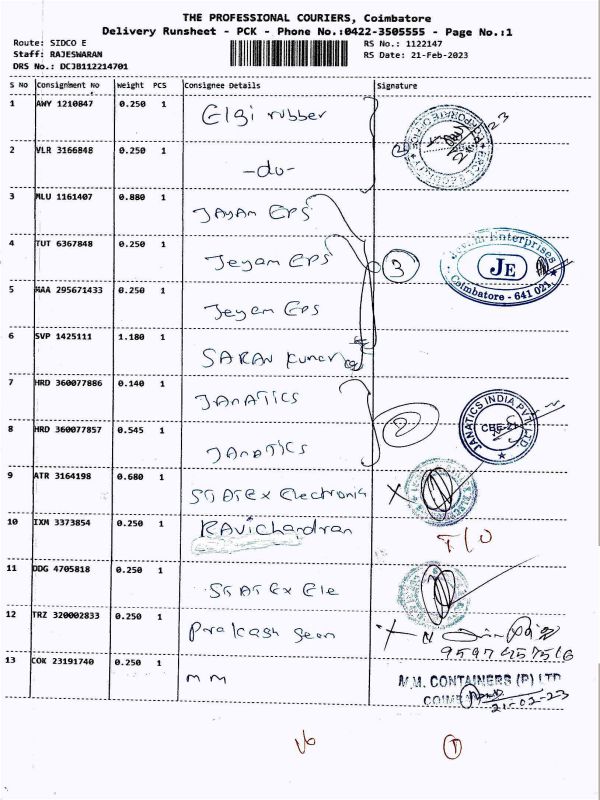 THE PROFESSIONAL COURIERS, Coimbatore
Delivery Runsheet - PCK - Phone No.:0422-3505555 - Page No.:1
Route: SIDCO E
RS No.: 1122147
Staff: RAJESWARAN
RS Date: 21-Feb-2023
DRS No.: DCJB112214701
S No Consignment No Weight PCS Consignee Details Signature
1 AWY 1210847 0.250 1 Elgi rubber
2 VLR 3166848 0.250 1 -do-
3 MLU 1161407 0.880 1 JAYAM EPS
4 TUT 6367848 0.250 1 Jeyam EPS 3 Enterprises JE Coimbatore - 641 021
5 MAA 295671433 0.250 1 Jeyam EPS
6 SVP 1425111 1.180 1 SARAN Kumar
7 HRD 360077886 0.140 1 JANATICS
8 HRD 360077857 0.545 1 JANATICS 2 JANATICS INDIA PVT. LTD CBE-21
9 ATR 3164198 0.680 1 STATEX Electronic
10 IXM 3373854 0.250 1 RAVichandran T/O
11 DDG 4705818 0.250 1 STATEX Ele
12 TRZ 320002833 0.250 1 Prakash
13 COK 23191740 0.250 1 MM M.M. CONTAINERS (P) LTD
21-02-23